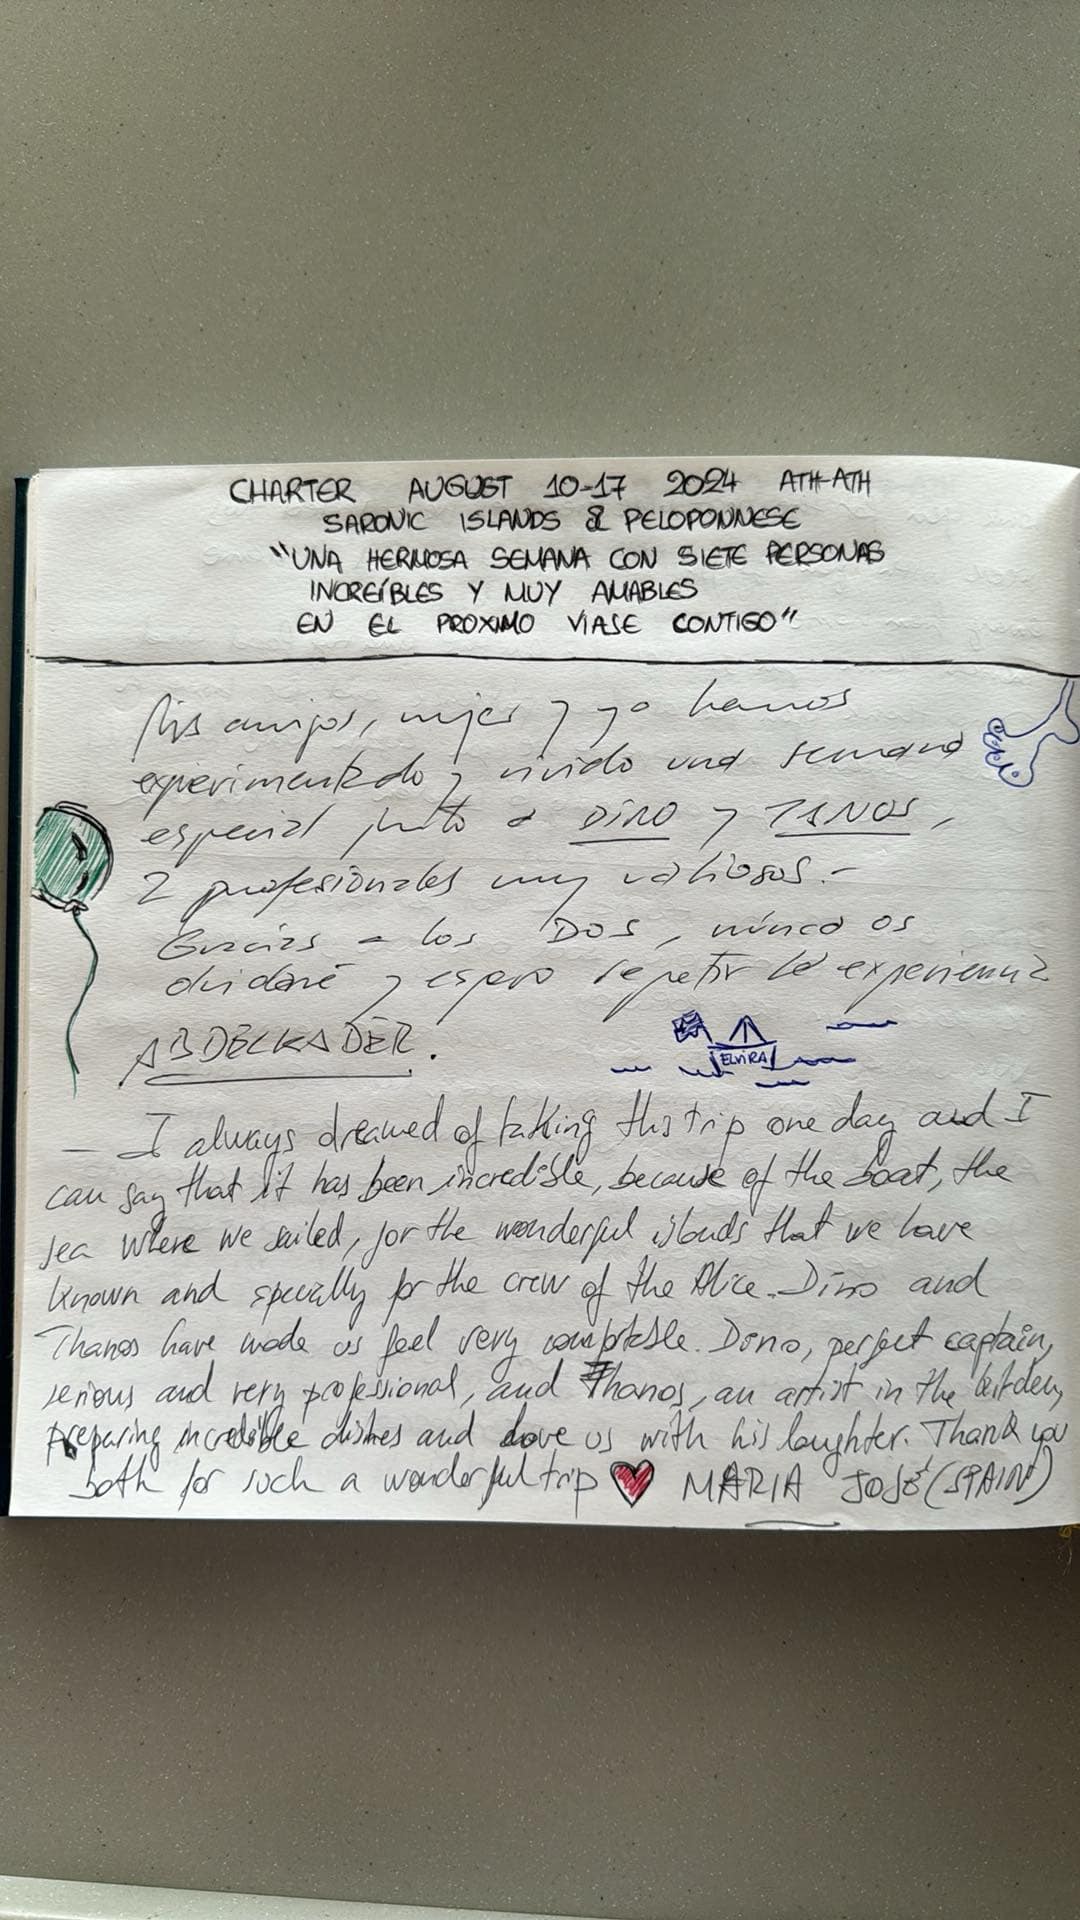 CHARTER AUGUST 10-17 2024 ATH-ATH
SARONIC ISLANDS & PELOPONNESE
"UNA HERMOSA SEMANA CON SIETE PERSONAS
INCREÍBLES Y MUY AMABLES
EN EL PROXIMO VIASE CONTIGO"
Mis amigos, mujer y yo hemos
experimentado y vivido una semana
especial junto a DINO y TANOS,
2 profesionales muy valiosos.-
Gracias a los DOS, núnca os
olvidaré y espero repetir la experiencia
ABDELKADER.
ELVIRA
- I always dreamed of taking this trip one day and I
can say that it has been incredible, because of the boat, the
sea where we sailed, for the wonderful islands that we have
known and specially for the crew of the Alice. Dino and
Thanos have made us feel very comfortable. Dino, perfect captain,
serious and very professional, and Thanos, an artist in the
preparing incredible dishes and love us with his laughter. Thank you
both for such a wonderful trip ❤ MARIA JOSÉ (SPAIN)